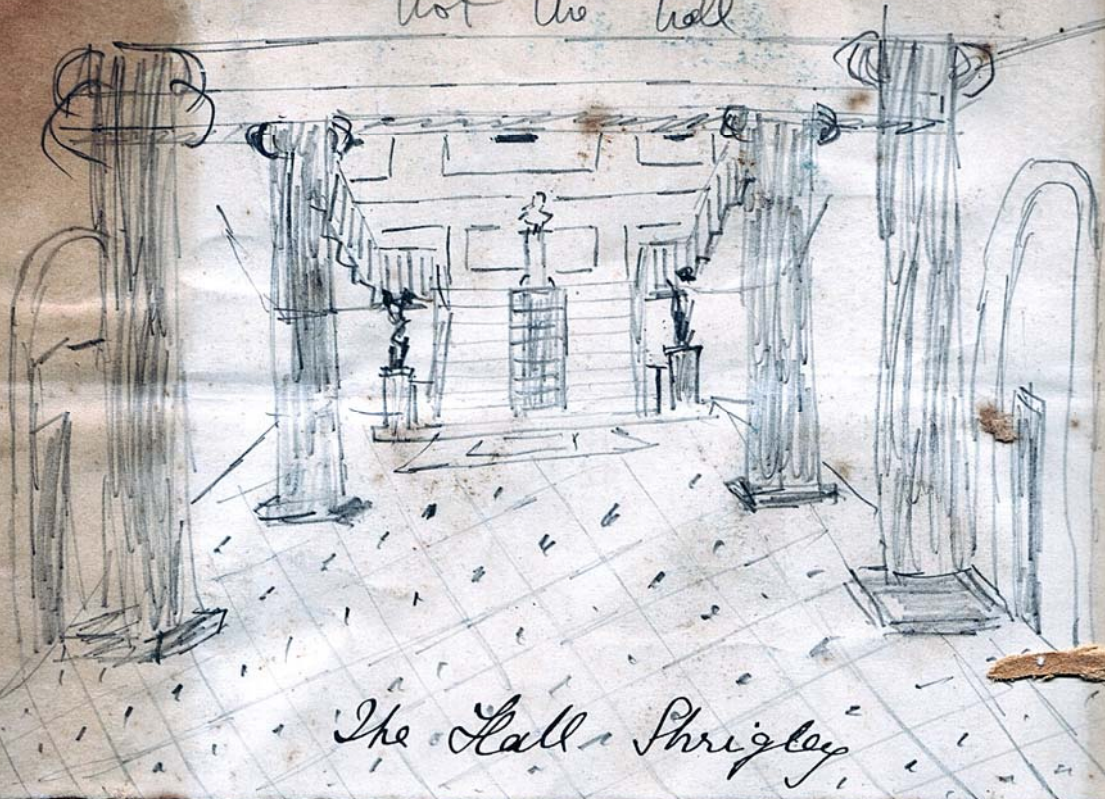 not the hall
The Hall Shrigley